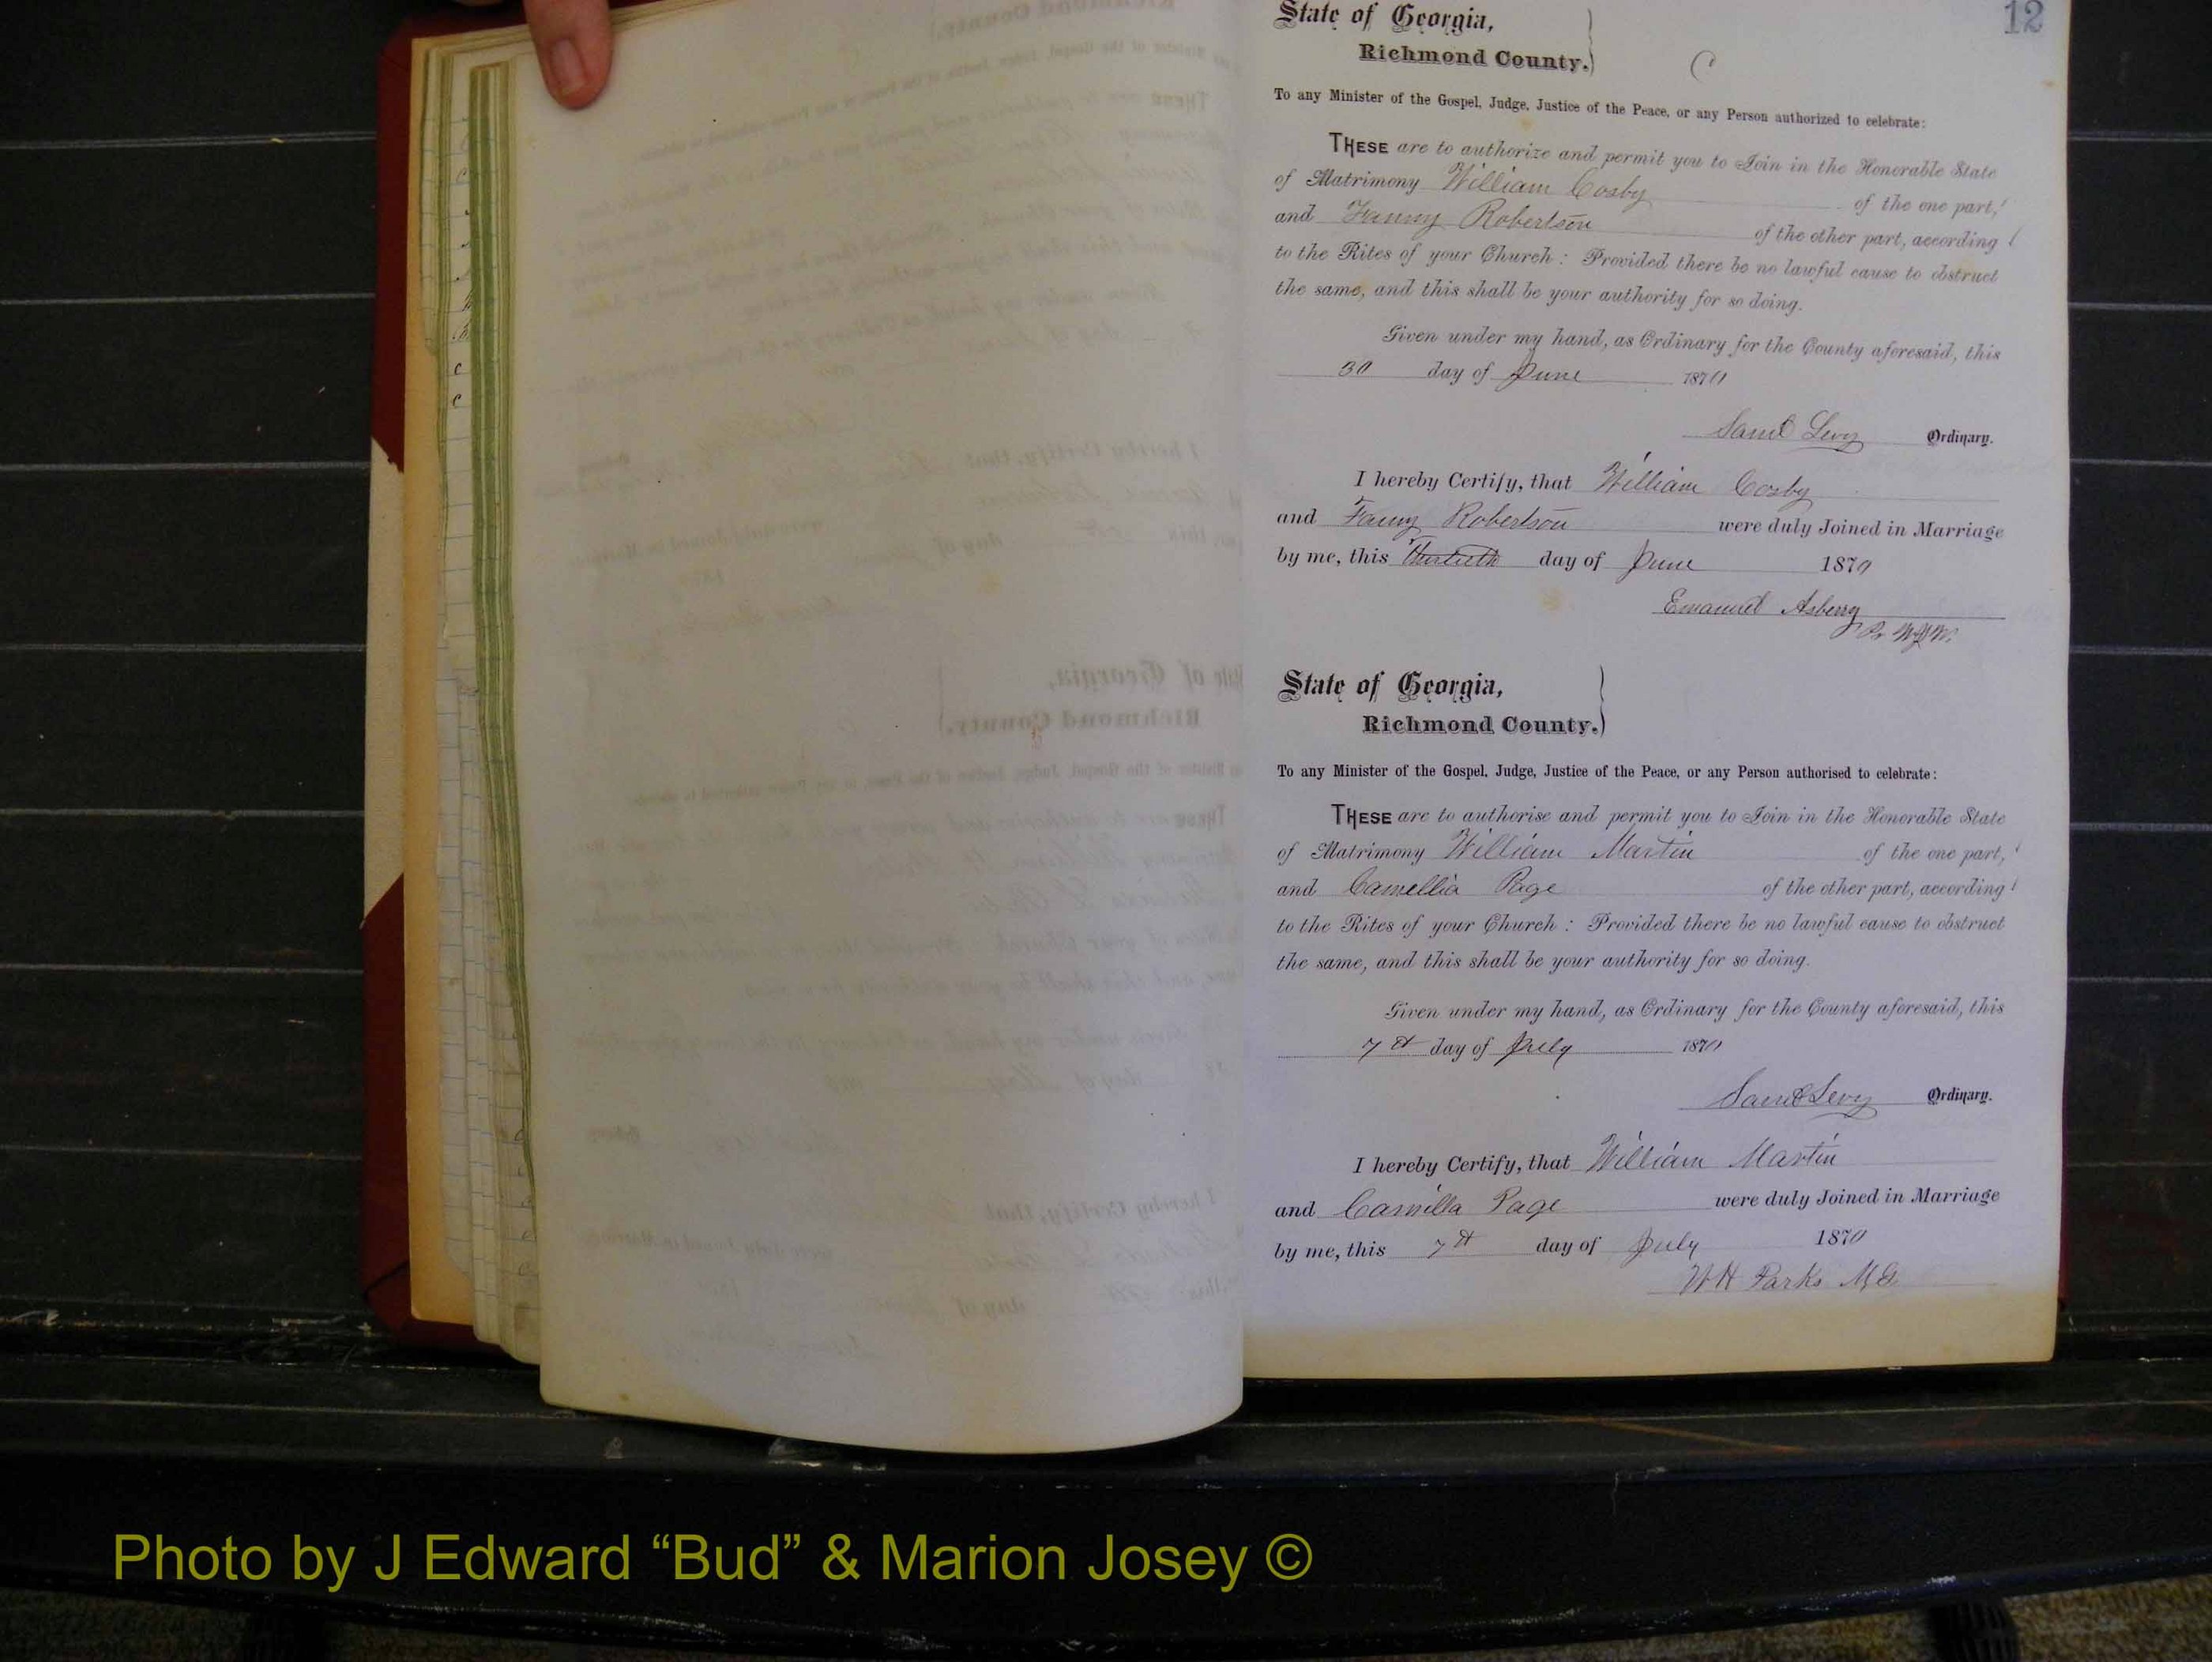 12
State of Georgia,
Richmond County.
C
To any Minister of the Gospel, Judge, Justice of the Peace, or any Person authorized to celebrate:
THESE are to authorize and permit you to Join in the Honorable State
of Matrimony William Cosby of the one part,
and Fanny Robertson of the other part, according
to the Rites of your Church: Provided there be no lawful cause to obstruct
the same, and this shall be your authority for so doing.
Given under my hand, as Ordinary for the County aforesaid, this
30 day of June 1870
Saml Levy Ordinary.
I hereby Certify, that William Cosby
and Fanny Robertson were duly Joined in Marriage
by me, this Thirtieth day of June 1870
Emanuel Asberry
State of Georgia,
Richmond County.
To any Minister of the Gospel, Judge, Justice of the Peace, or any Person authorised to celebrate:
THESE are to authorise and permit you to Join in the Honorable State
of Matrimony William Martin of the one part,
and Camellia Page of the other part, according
to the Rites of your Church: Provided there be no lawful cause to obstruct
the same, and this shall be your authority for so doing.
Given under my hand, as Ordinary for the County aforesaid, this
7th day of July 1870
Saml Levy Ordinary.
I hereby Certify, that William Martin
and Camilla Page were duly Joined in Marriage
by me, this 7th day of July 1870
W H Parks M.G.
Photo by J Edward “Bud” & Marion Josey ©